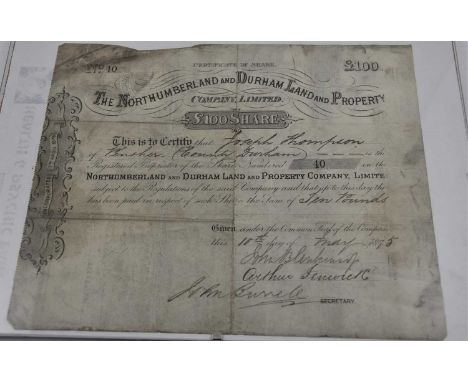 CERTIFICATE OF SHARE.
No 10 £100
THE NORTHUMBERLAND AND DURHAM LAND AND PROPERTY
COMPANY, LIMITED.
£100 SHARE
This is to Certify that Joseph Thompson
of (County Durham) in the
Registered Proprietor of the Share Numbered 10 in the
NORTHUMBERLAND AND DURHAM LAND AND PROPERTY COMPANY, LIMITE
subject to the Regulations of the said Company and that up to this day the
has been paid in respect of such Share the Sum of Ten Pounds
Given under the Common Seal of the Compan
this 10th day of May 1875
John
Arthur Fenwick
John
SECRETARY.